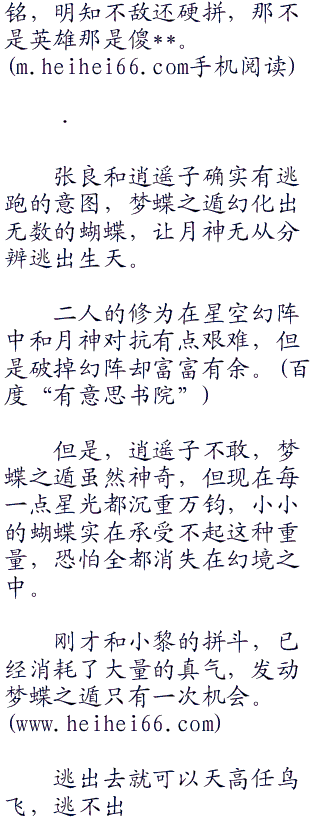 铭，明知不敌还硬拼，那不
是英雄那是傻**。
(m.heihei66.com手机阅读)
.
张良和逍遥子确实有逃
跑的意图，梦蝶之遁幻化出
无数的蝴蝶，让月神无从分
辨逃出生天。
二人的修为在星空幻阵
中和月神对抗有点艰难，但
是破掉幻阵却富富有余。(百
度“有意思书院”)
但是，逍遥子不敢，梦
蝶之遁虽然神奇，但现在每
一点星光都沉重万钧，小小
的蝴蝶实在承受不起这种重
量，恐怕全都消失在幻境之
中。
刚才和小黎的拼斗，已
经消耗了大量的真气，发动
梦蝶之遁只有一次机会。
(www.heihei66.com)
逃出去就可以天高任鸟
飞，逃不出